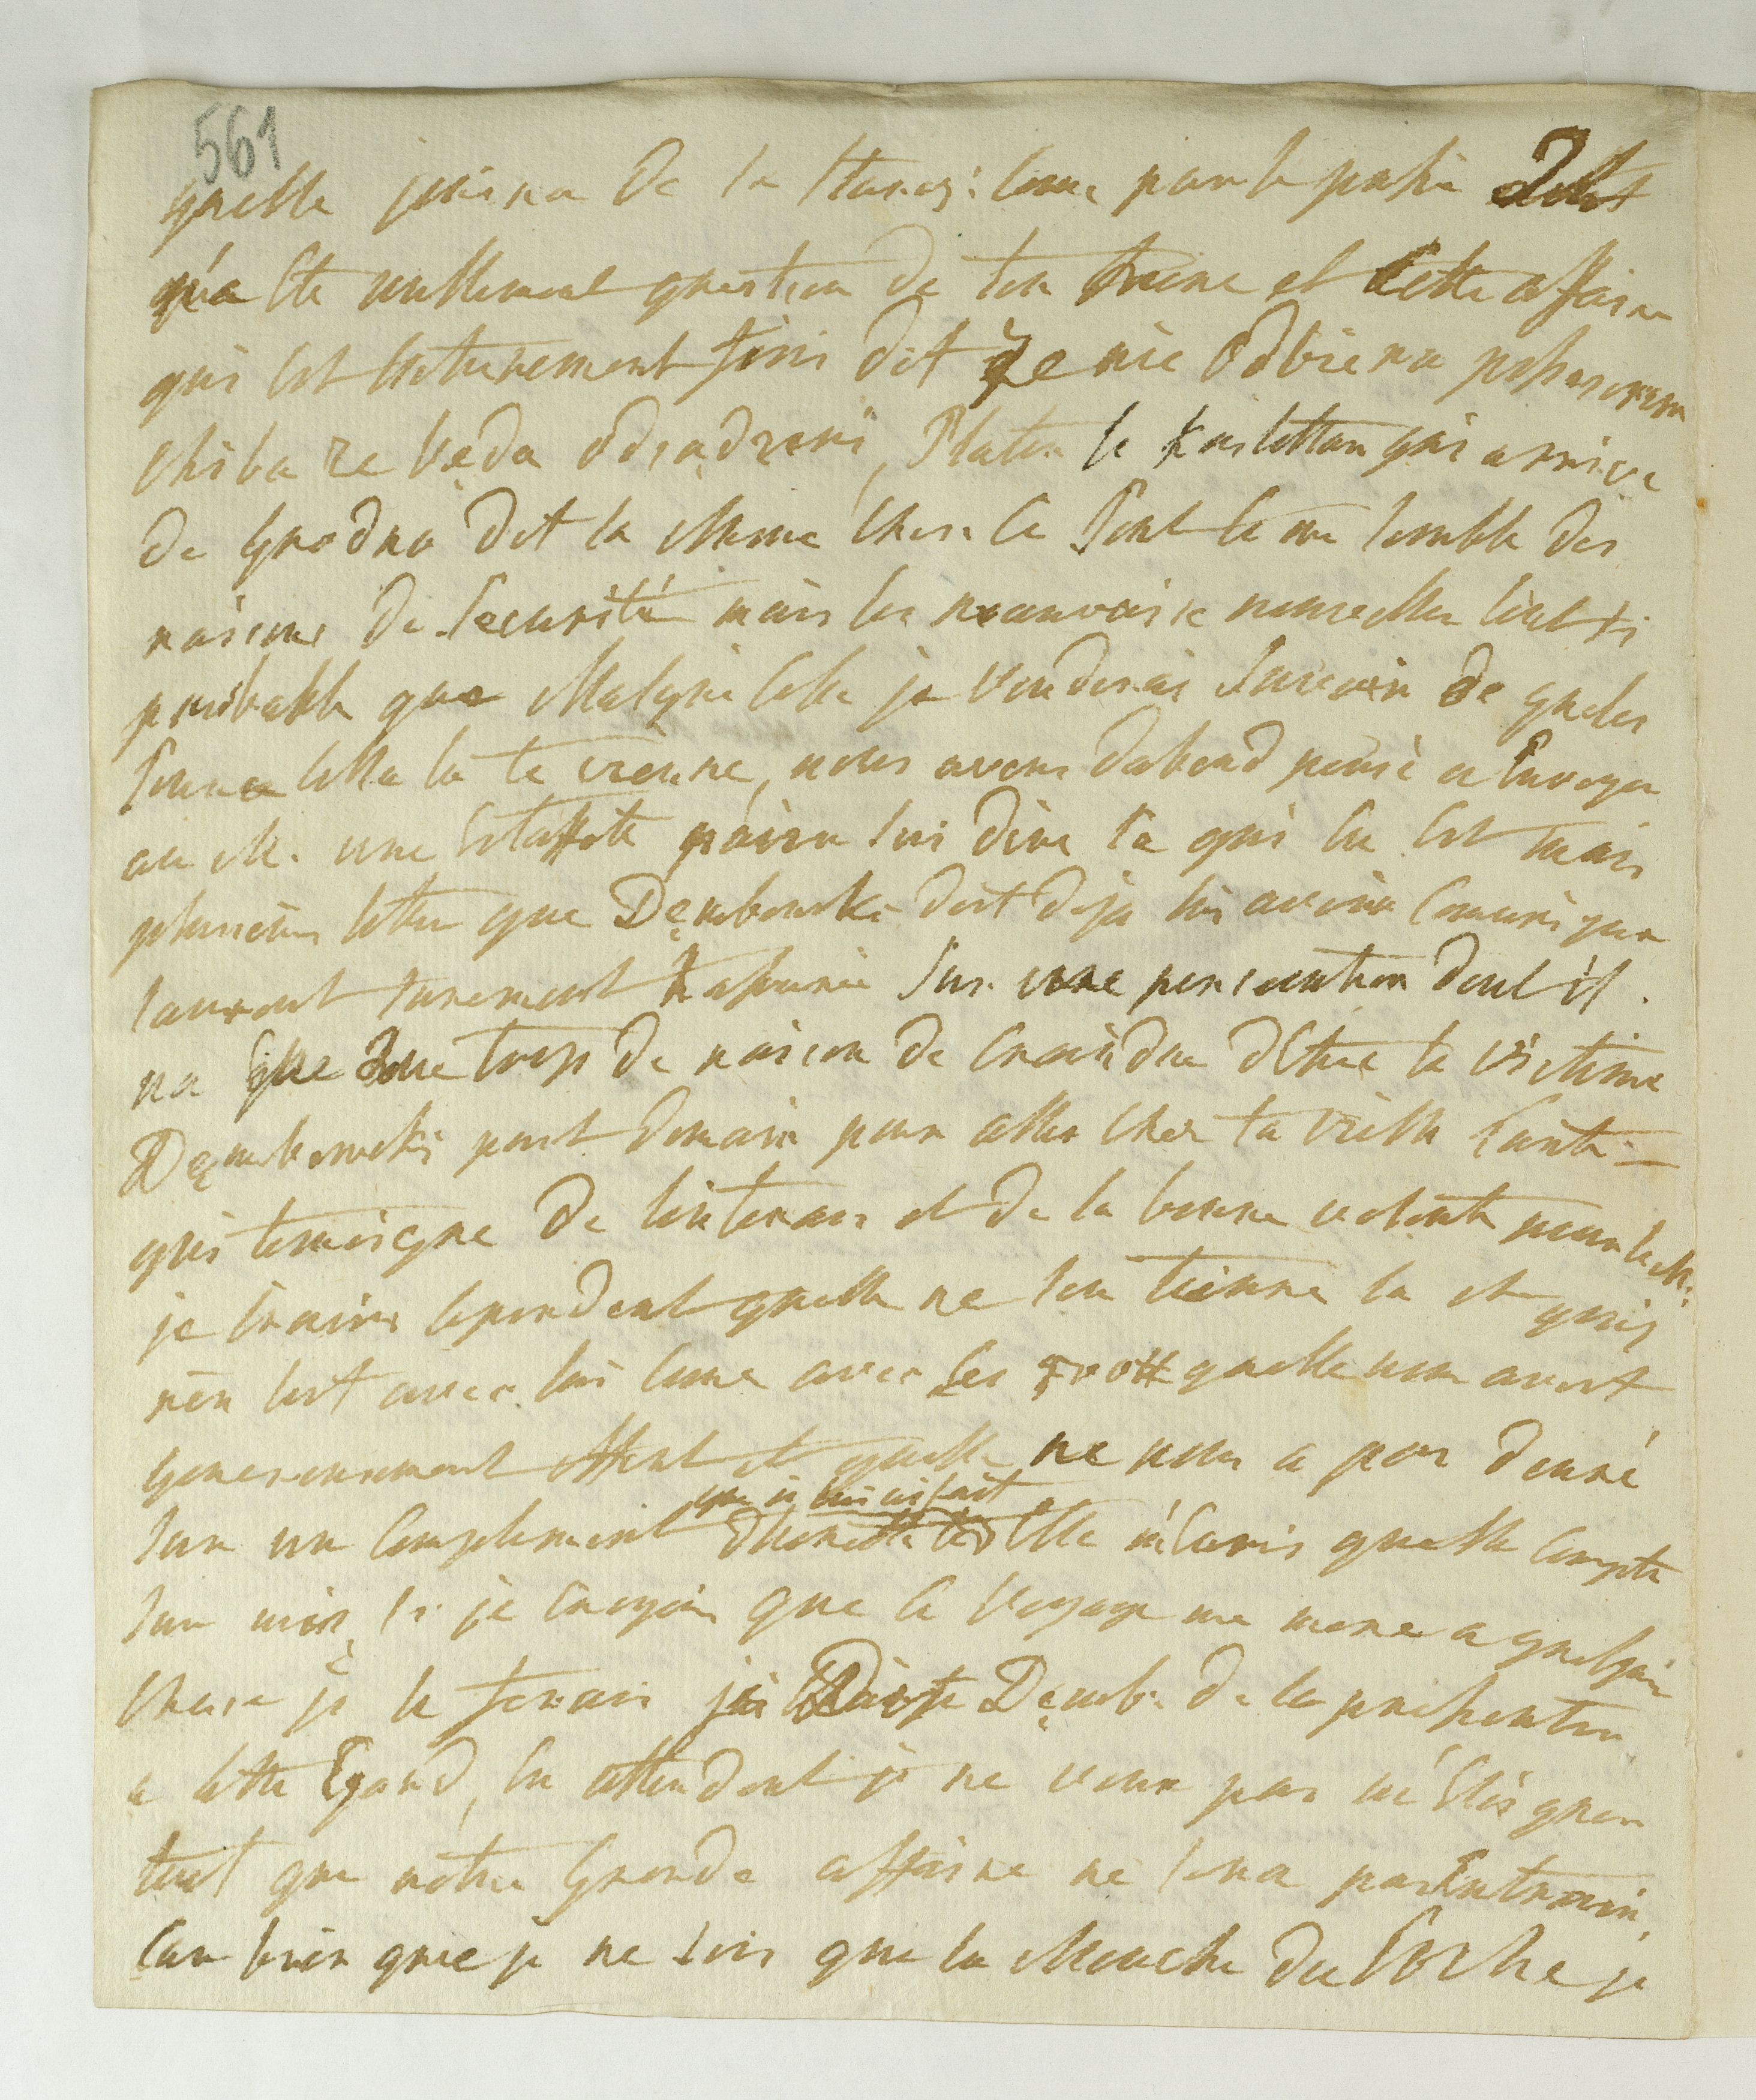 561
quelle jouira de la Staros: come par le passé
n'a Ete nullement question de ton frere et Cette affaire
qui Est Entierement fini dit Ze nie Odbiera
chiba ze będa odsądzeni, Platon le Kastellan qui arrive
de Grodno dit la Meme Chose Ce Sont Ce me semble des
raisons de Securité mais les mauvaise nouvelles sont si
probable que Malgré Cela je Vouderai Savoir de queles
Source Cella la te vienne, nous avons dabord pensé a Envoyer
au M. une Estaffete pour lui dire Ce qui En Est mais
plusieurs lettre que Dęmbowski doit deja lui avoir Comuniquer
lauront surement rassurée Sur une persecution dont il
na que trop de raison de Craindre dEtre la victime
Dęmbowski part demain pour aller Chez ta vielle tante
qui temoigne de linteraix et de la bonne volonté pour le M:
je Crains Cependent quelle ne sen tienne la et quil
nen Est avec lui Come avec les quelle nous avait
genereusement offert et quelle ne nous a pas donné
sur un Complement que a Elle m'Ecris quelle Compte
sur moi, si je Croyois que Ce Voyage me mene a quelque
Chose je le ferais jai Dęmb: de la pressentir
a Cette Egard, En attendent je ne veux pas m'Eloigner
tant que nôtre Grande affaire ne sera pas Entrain,
Car bien que je ne sois que la Mouche du Coche je